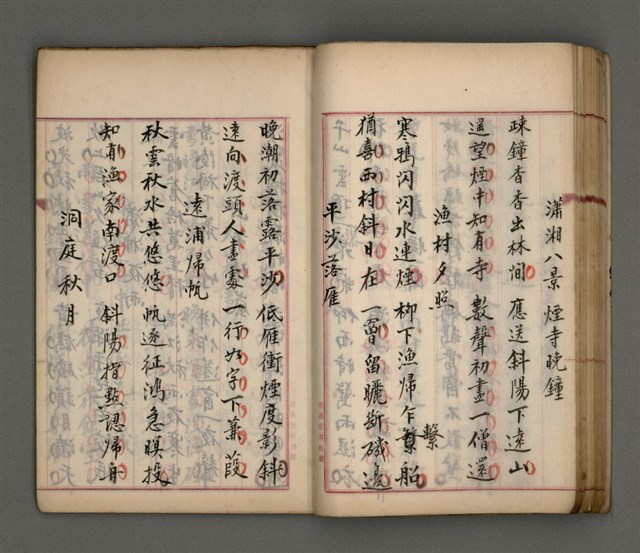 瀟湘八景 煙寺晚鐘
疎鐘杳杳出林間 應送斜陽下遠山
遥望煙中知有寺 數聲初盡一僧還
漁村夕照
寒鴉閃閃水連煙 柳下漁歸乍繫船
繫
猶喜西村斜日在 一罾留曬斷磯邊
平沙落雁
晚潮初落露平沙 低雁衝煙度影斜
遠向渡頭人盡處 一行如字下蒹葭
遠浦歸帆
秋雲秋水共悠悠 帆逐征鴻急暝投
知有漁家南渡口 斜陽指點認歸舟
洞庭秋月